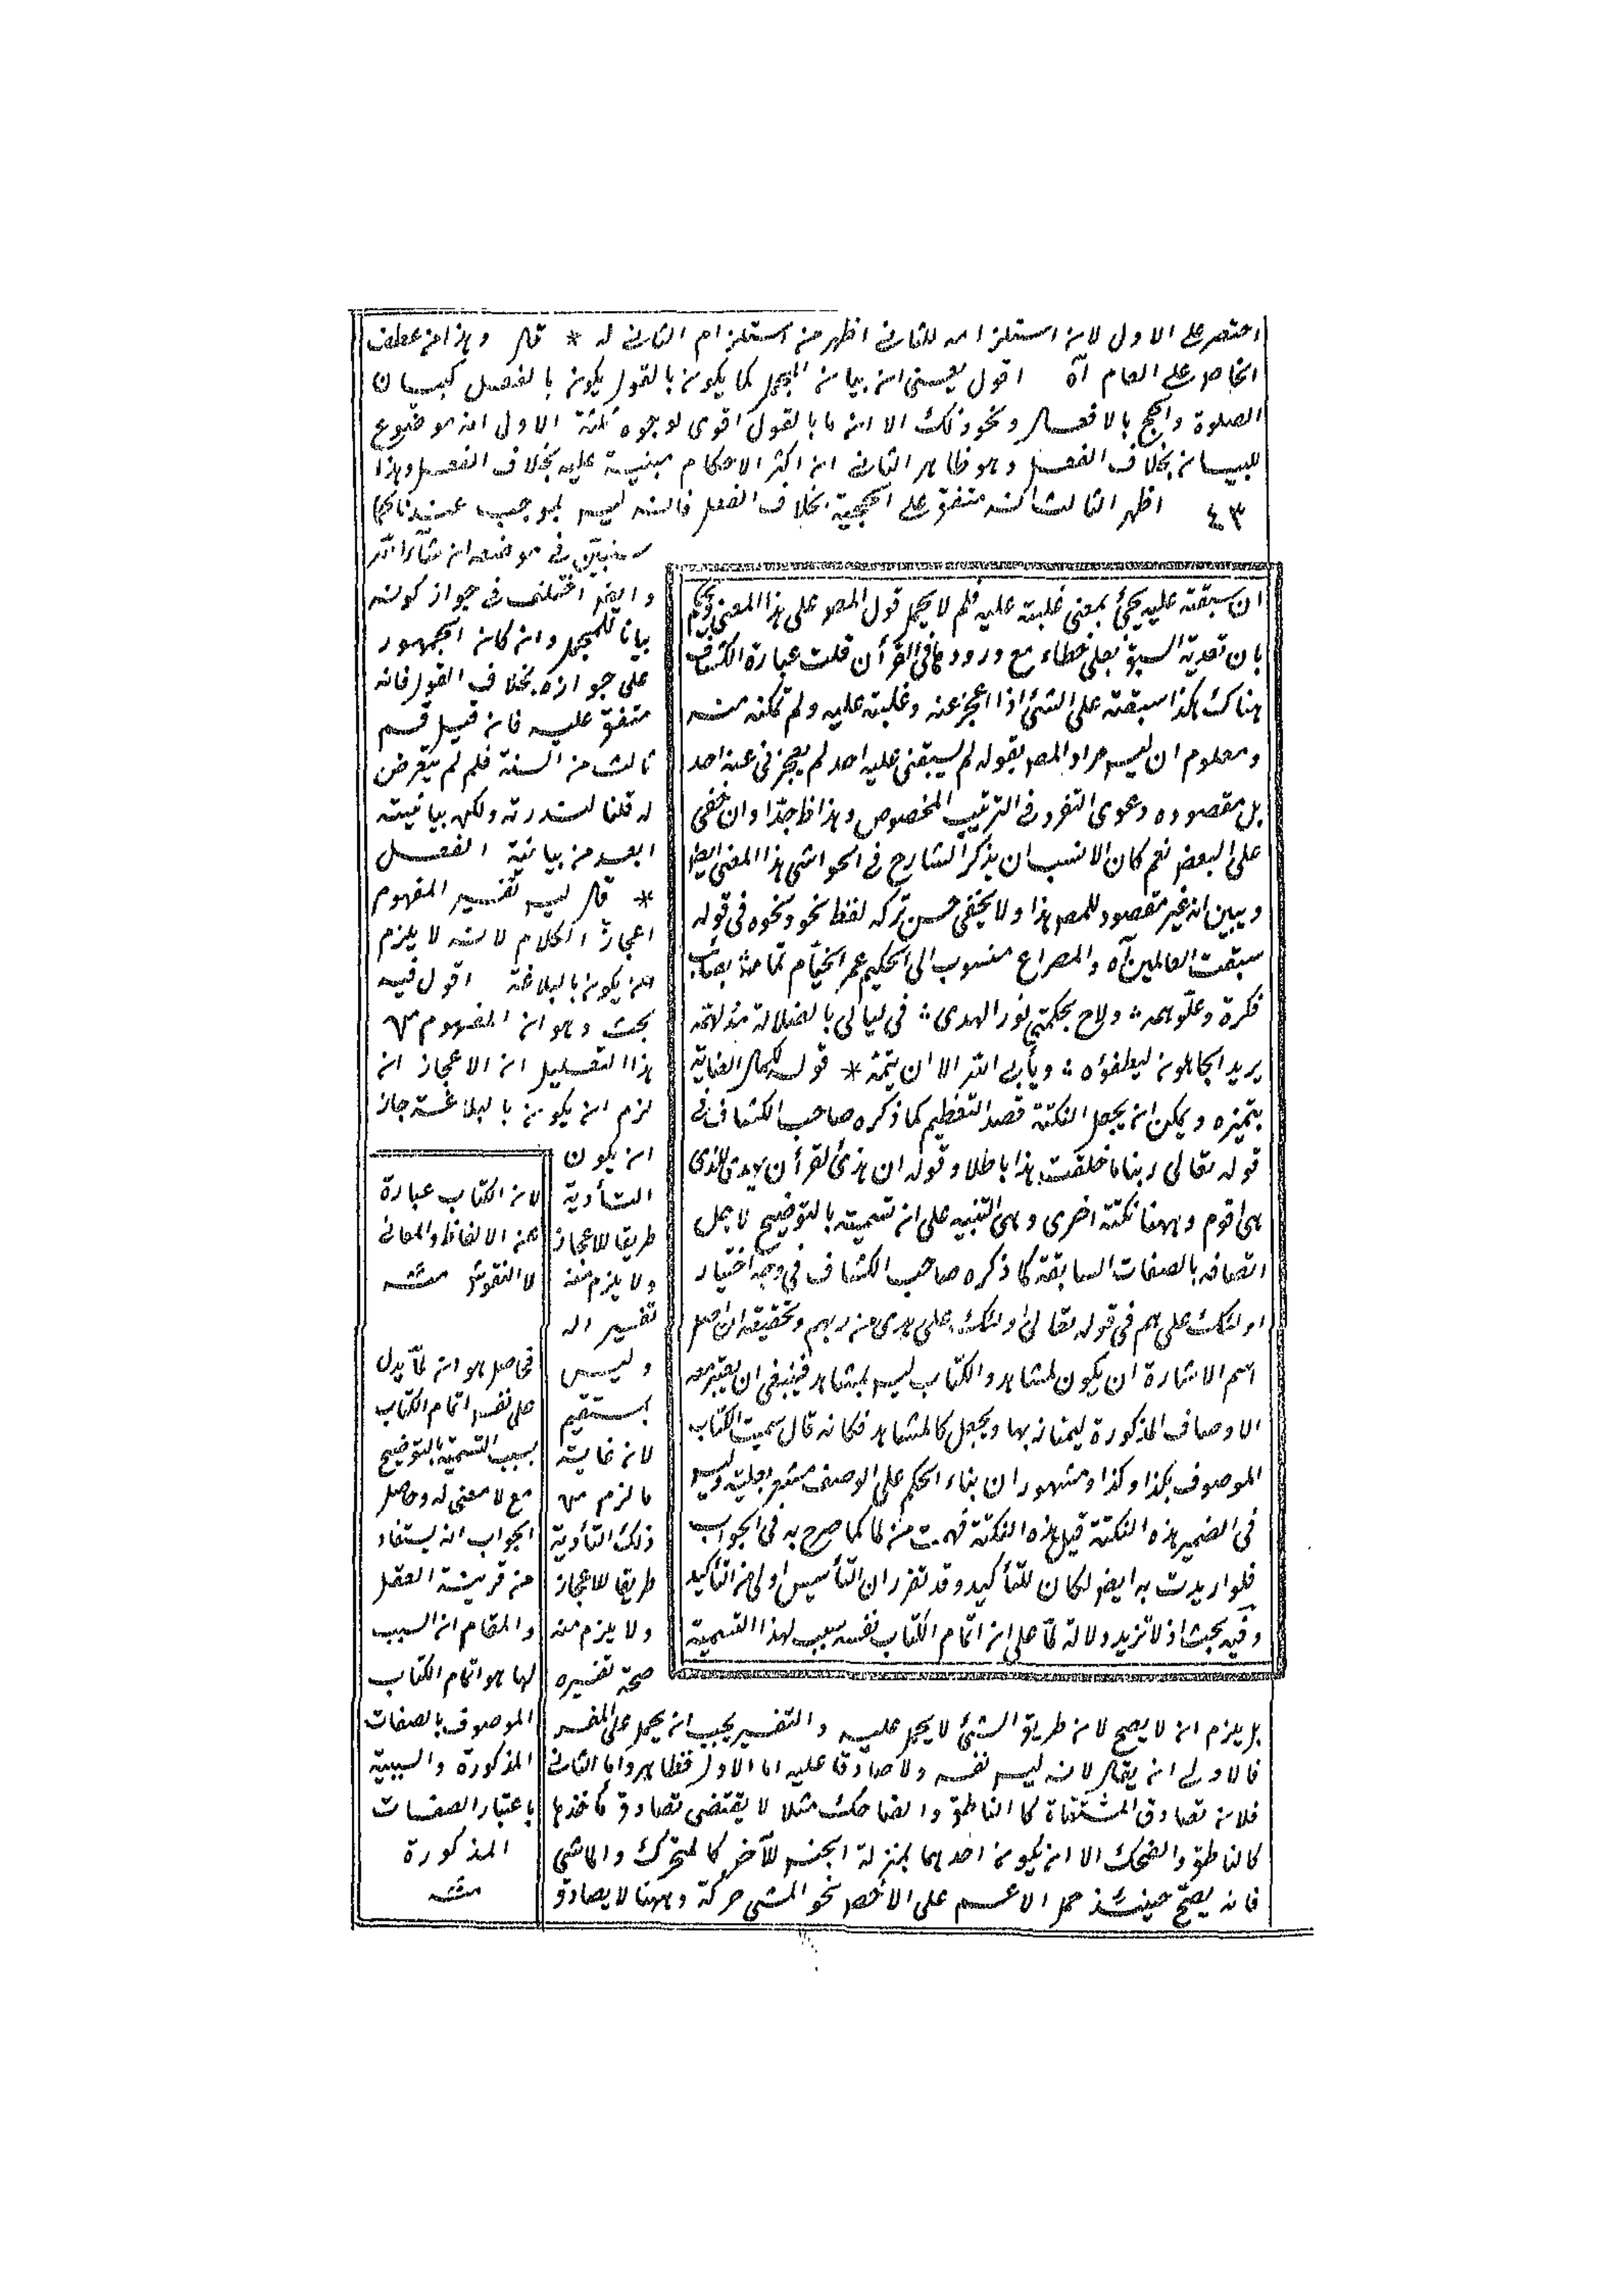 اختصر على الاول لان استلزامه للثانى اظهر من استلزام الثانى له * قال وهذا من عطف
الخاص على العام آه اقول يعنى ان بيان المجمل كما يكون بالقول يكون بالفعل كبيان
الصلوة والحج بالافعال ونحو ذلك الا ان ما بالقول اقوى لوجوه ثلثة الاول انه موضوع
للبيان بخلاف الفعل وهو ظاهر الثانى ان اكثر الاحكام مبنية عليه بخلاف الفعل وهذا
٤٣ اظهر الثالث انه متفق على الحجية بخلاف الفعل فانه ليس بموجب عندنا كما
سنبين فى موضعه ان شاء الله
وايضا اختلف فى جواز كونه
بيانا للمجمل وان كان الجمهور
على جوازه بخلاف القول فانه
متفق عليه فان قيل قسم
ثالث من السنة فلم لم يتعرض
له قلنا لندرته ولكن بيانيته
ابعد من بيانية الفعل
* قال ليس تفسير المفهوم
اعجاز الكلام لانه لا يلزم
من يكون بالبلاغة اقول فيه
بحث وهو ان المفهوم من
هذا التعليل ان الاعجاز ان
لزم ان يكون بالبلاغة جاز
ان يكون
التأدية
طريقا للاعجاز
ولا يلزم منه
تفسير اله
وليس
بمستقيم
لان غاية
ما لزم من
ذلك التأدية
طريقا للاعجاز
ولا يلزم منه
صحة تفسيره
بل يلزم ان لا يصح لان طريق الشئ لا يحمل عليه والتفسير يجب ان يحمل على المفسر
فالاولى ان يقال لانه ليس نفسه ولا صادقا عليه اما الاول فظاهر واما الثانى
فلان تصادق المشتقات كالناطق والضاحك مثلا لا يقتضى تصادق مأخذها
كالناطق والضحك الا ان يكون احدهما بمنزلة الجنس للآخر كالمتحرك والماشى
فانه يصح حينئذ حمل الاعم على الاخص نحو المشى حركة وههنا لا يصادق
ان سبقته عليه يجئ بمعنى غلبته عليه فلم لا يحمل قول المص على هذا المعنى
بان تعدية السبق بعلى خطاء مع ورودها فى القرأن قلت عبارة الكشاف
هناك هكذا سبقته على الشئ اذا اعجز عنه وغلبته عليه ولم تمكنه منه
ومعلوم ان ليس مراد المص بقوله لم يسبقنى عليه احد لم يعجزنى عنه احد
بل مقصوده دعوى التفرد فى الترتيب المخصوص وهذا ظ جدا وان خفى
على البعض نعم كان الانسب ان يذكر الشارح فى الحواشى هذا المعنى ايضا
ويبين انه غير مقصود للمص هذا ولا يخفى حسن تركه لفظ نحو ونحوه فى قوله
سبقت العالمين آه والمصراع منسوب الى الحكيم عمر الخيام تمامه بصائب
فكرة وعلو همه ؛ ولاح بحكمتى نور الهدى ؛ فى ليالى بالضلالة مدلهمه
يريد الجاهلون ليطفؤه ؛ ويأبى الله الا ان يتمه * قوله لكمال العناية
بتميزه ويمكن ان يجعل النكتة قصد التعظيم كما ذكره صاحب الكشاف فى
قوله تعالى ربنا ما خلقت هذا باطلا وقوله ان هذا القرأن يهدى للذى
هى اقوم وههنا نكتة اخرى وهى التنبيه على ان تسميته بالتوضيح لاجل
اتصافه بالصفات السابقة كما ذكره صاحب الكشاف فى وجه اختيار
اولئك على هم فى قوله تعالى اولئك على هدى من ربهم وتحقيقه ان اصل
اسم الاشارة ان يكون لمشاهد والكتاب ليس بمشاهد فينبغى ان يعتبر معه
الاوصاف المذكورة ليمتاز بها ويجعل كالمشاهد فكانه قال سميت الكتاب
الموصوف بكذا وكذا ومشهور ان بناء الحكم على الوصف مشعر بعليته وليس
فى الضمير هذه النكتة قيل هذه النكتة فهمت من لما كما صرح به فى الجواب
فلو اريدت به ايضا لكان للتأكيد وقد تقرر ان التأسيس اولى من التأكيد
وفيه بحث اذ لا تزيد دلالة لما على ان اتمام الكتاب نفسه سبب لهذا التسمية
لان الكتاب عبارة
عن الالفاظ والمعانى
لا النقوش منه
فحاصل هو ان لما يدل
على نفس اتمام الكتاب
بسبب التسمية بالتوضيح
مع لا معنى له وحاصل
الجواب انه يستفاد
من قرينة العقل
والمقام ان السبب
لها هو اتمام الكتاب
الموصوف بالصفات
المذكورة والسببية
باعتبار الصفات
المذكورة
منه